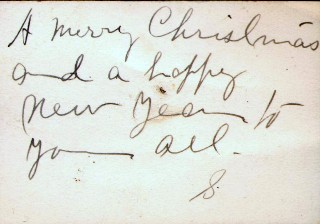 A Merry Christmas
and a happy
New Year to
you all.
S.